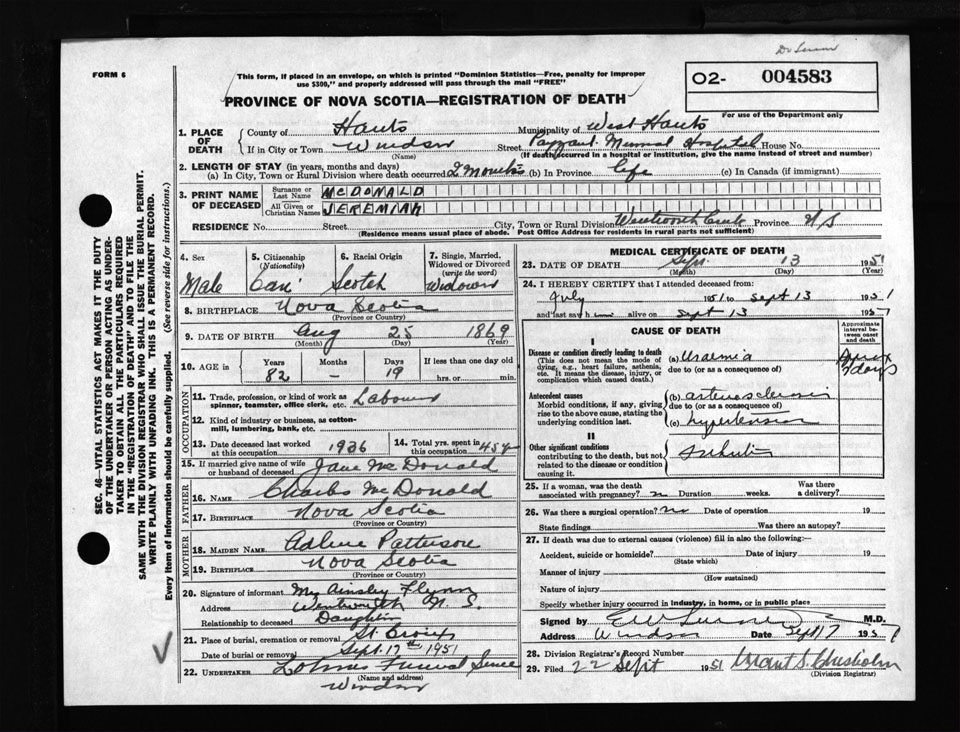 FORM 6
This form, if placed in an envelope, on which is printed "Dominion Statistics—Free, penalty for improper
use $300," and properly addressed will pass through the mail "FREE"
PROVINCE OF NOVA SCOTIA—REGISTRATION OF DEATH
O2- 004583
For use of the Department only
1. PLACE OF DEATH
County of Hants Municipality of West Hants
If in City or Town Windsor Street Payzant Hospital House No.
(Name) (If death occurred in a hospital or institution, give the name instead of street and number)
2. LENGTH OF STAY (in years, months and days)
(a) In City, Town or Rural Division where death occurred 2 Months (b) In Province life (c) In Canada (if immigrant)
3. PRINT NAME OF DECEASED
Surname or Last Name MCDONALD
All Given or Christian Names JEREMIAH
RESIDENCE No. Street City, Town or Rural Division Wentworth Province N S
(Residence means usual place of abode. Post Office Address for residents in rural parts not sufficient)
4. Sex Male
5. Citizenship (Nationality) Can
6. Racial Origin Scotch
7. Single, Married, Widowed or Divorced (write the word) Widower
8. BIRTHPLACE Nova Scotia
(Province or Country)
9. DATE OF BIRTH Aug 25 1869
(Month) (Day) (Year)
10. AGE in Years 82 Months — Days 19 If less than one day old hrs. or min.
OCCUPATION
11. Trade, profession, or kind of work as spinner, teamster, office clerk, etc. Labourer
12. Kind of industry or business, as cotton-mill, lumbering, bank, etc.
13. Date deceased last worked at this occupation 1936
14. Total yrs. spent in this occupation 45 y
15. If married give name of wife or husband of deceased Jane McDonald
FATHER
16. NAME Charles McDonald
17. BIRTHPLACE Nova Scotia
(Province or Country)
MOTHER
18. MAIDEN NAME Patterson
19. BIRTHPLACE Nova Scotia
(Province or Country)
20. Signature of informant Mrs Ainsley Flynn
Address Wentworth N. S.
Relationship to deceased Daughter
21. Place of burial, cremation or removal St. Croix
Date of burial or removal Sept. 17th 1951
22. UNDERTAKER Funeral Service
(Name and address)
Windsor
MEDICAL CERTIFICATE OF DEATH
23. DATE OF DEATH Sept. 13 1951
(Month) (Day) (Year)
24. I HEREBY CERTIFY that I attended deceased from:
July 1951 to Sept 13 1951
and last saw him alive on Sept 13 1951
CAUSE OF DEATH
Approximate interval between onset and death
I
Disease or condition directly leading to death
(This does not mean the mode of dying, e.g., heart failure, asthenia, etc. It means the disease, injury, or complication which caused death.)
(a) Uraemia
due to (or as a consequence of)
7 days
Antecedent causes
Morbid conditions, if any, giving rise to the above cause, stating the underlying condition last.
(b) arteriosclerosis
due to (or as a consequence of)
(c) hypertension
II
Other significant conditions
contributing to the death, but not related to the disease or condition causing it.
25. If a woman, was the death associated with pregnancy? Duration weeks. Was there a delivery?
26. Was there a surgical operation? no Date of operation 19
State findings Was there an autopsy?
27. If death was due to external causes (violence) fill in also the following:—
Accident, suicide or homicide? Date of injury 19
(State which)
Manner of injury
(How sustained)
Nature of injury
Specify whether injury occurred in industry, in home, or in public place
Signed by M.D.
Address Windsor Date Sept 17 1951
28. Division Registrar's Record Number
29. Filed 22 Sept 1951 Grant S. Chisholm
(Division Registrar)
SEC. 46—VITAL STATISTICS ACT MAKES IT THE DUTY
OF THE UNDERTAKER OR PERSON ACTING AS UNDER-
TAKER TO OBTAIN ALL THE PARTICULARS REQUIRED
IN THE "REGISTRATION OF DEATH" AND TO FILE THE
SAME WITH THE DIVISION REGISTRAR WHO SHALL ISSUE THE BURIAL PERMIT.
WRITE PLAINLY WITH UNFADING INK. THIS IS A PERMANENT RECORD.
Every item of information should be carefully supplied. (See reverse side for instructions.)